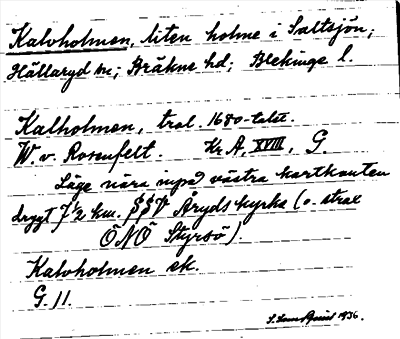 Kalvholmen, liten holme i Saltsjön;
Hällaryd sn; Bräkne hd; Blekinge l.
Kalholmen, trol. 1680-talet.
W. v. Rosenfelt. Kr A, XVIII, G.
Läge nära inpå västra kartkanten
drygt 7½ km. SSV Åryds kyrka (o. strax
ÖNÖ Styrsö).
Kalvholmen ek.
G. 11.
1936.